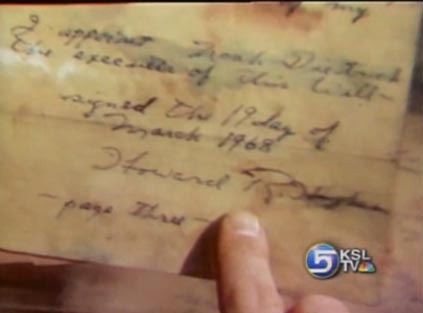 of my
I appoint Noah Dietrich
the executer of this will-
signed the 19 day of
March 1968
Howard R. Hughes
- page three -
5 KSL
TV